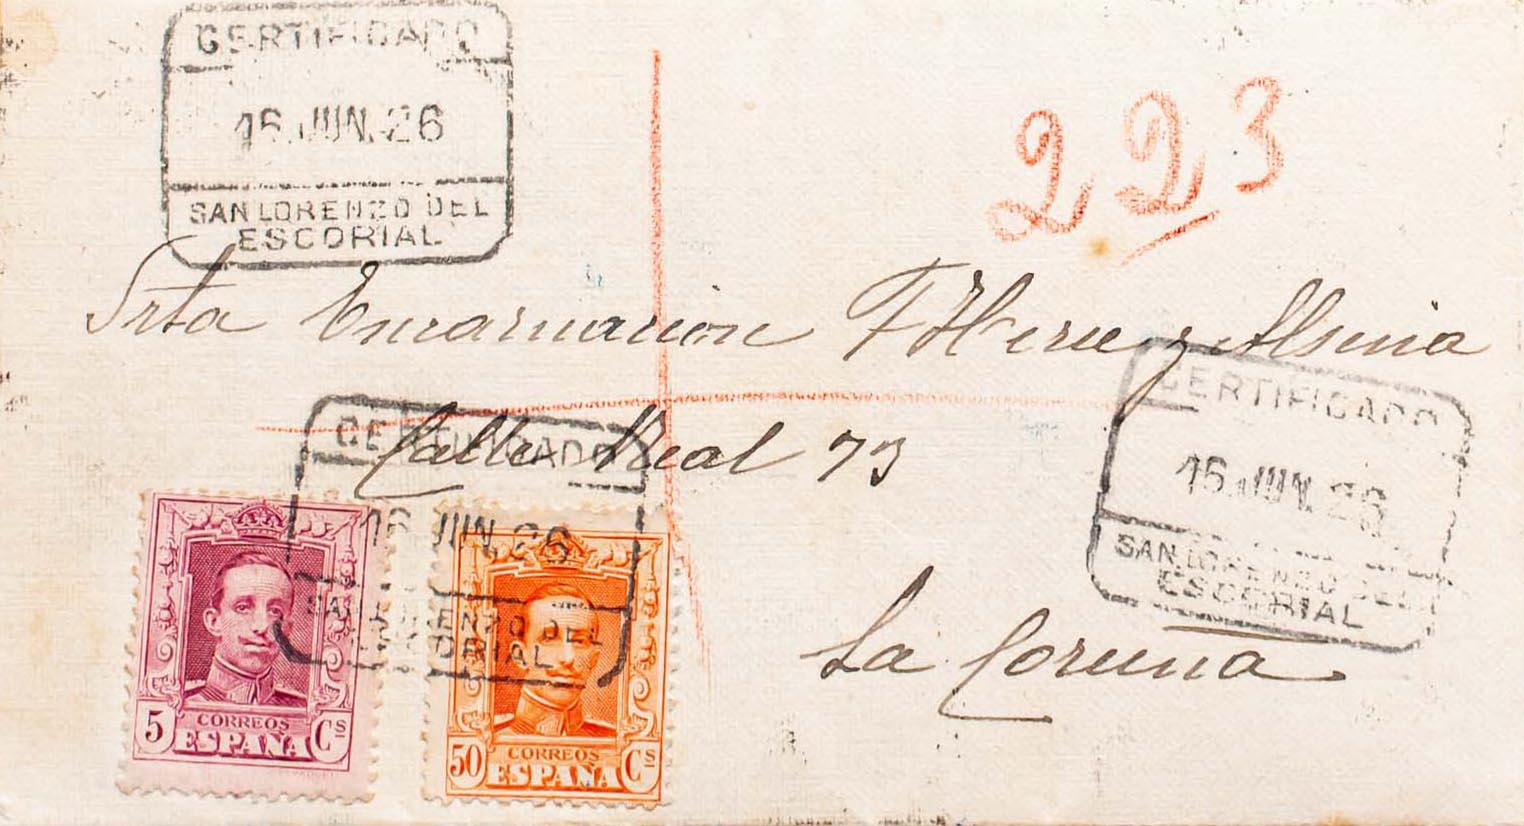 CERTIFICADO
16.JUN.26
SAN LORENZO DEL
ESCORIAL
223
Srta Encarnacion F Hervez Alsina
CERTIFICADO
16.JUN.26
SAN LORENZO DEL
ESCORIAL
Calle Real 73
CERTIFICADO
16 JUN.26
SAN LORENZO DEL
ESCORIAL
La Coruna
5 Cs
CORREOS
ESPAÑA
50 Cs
CORREOS
ESPAÑA